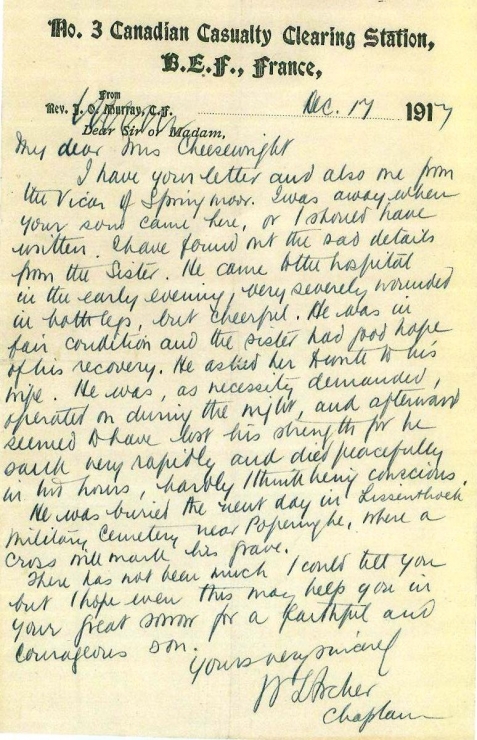 No. 3 Canadian Casualty Clearing Station,
B.E.F., France,
From
Rev. J. O. Murray, C.F.
Dec. 17 1917
Dear Sir or Madam,
My dear Mrs Cheesewright
I have your letter and also one from
the Vicar of Springmoor. I was away when
your son came here, or I should have
written. I have found out the sad details
from the Sister. He came to the hospital
in the early evening, very severely wounded
in both legs, but cheerful. He was in
fair condition and the sister had good hope
of his recovery. He asked her to write to his
wife. He was, as necessity demanded,
operated on during the night, and afterward
seemed to have lost his strength for he
sank very rapidly and died peacefully
in two hours, hardly I think being conscious.
He was buried the next day in Lissenthoek
Military Cemetery near Poperinghe, where a
cross will mark his grave.
There has not been much I could tell you
but I hope even this may help you in
your great sorrow for a faithful and
courageous son.
Yours very sincerely
W L Archer
Chaplain